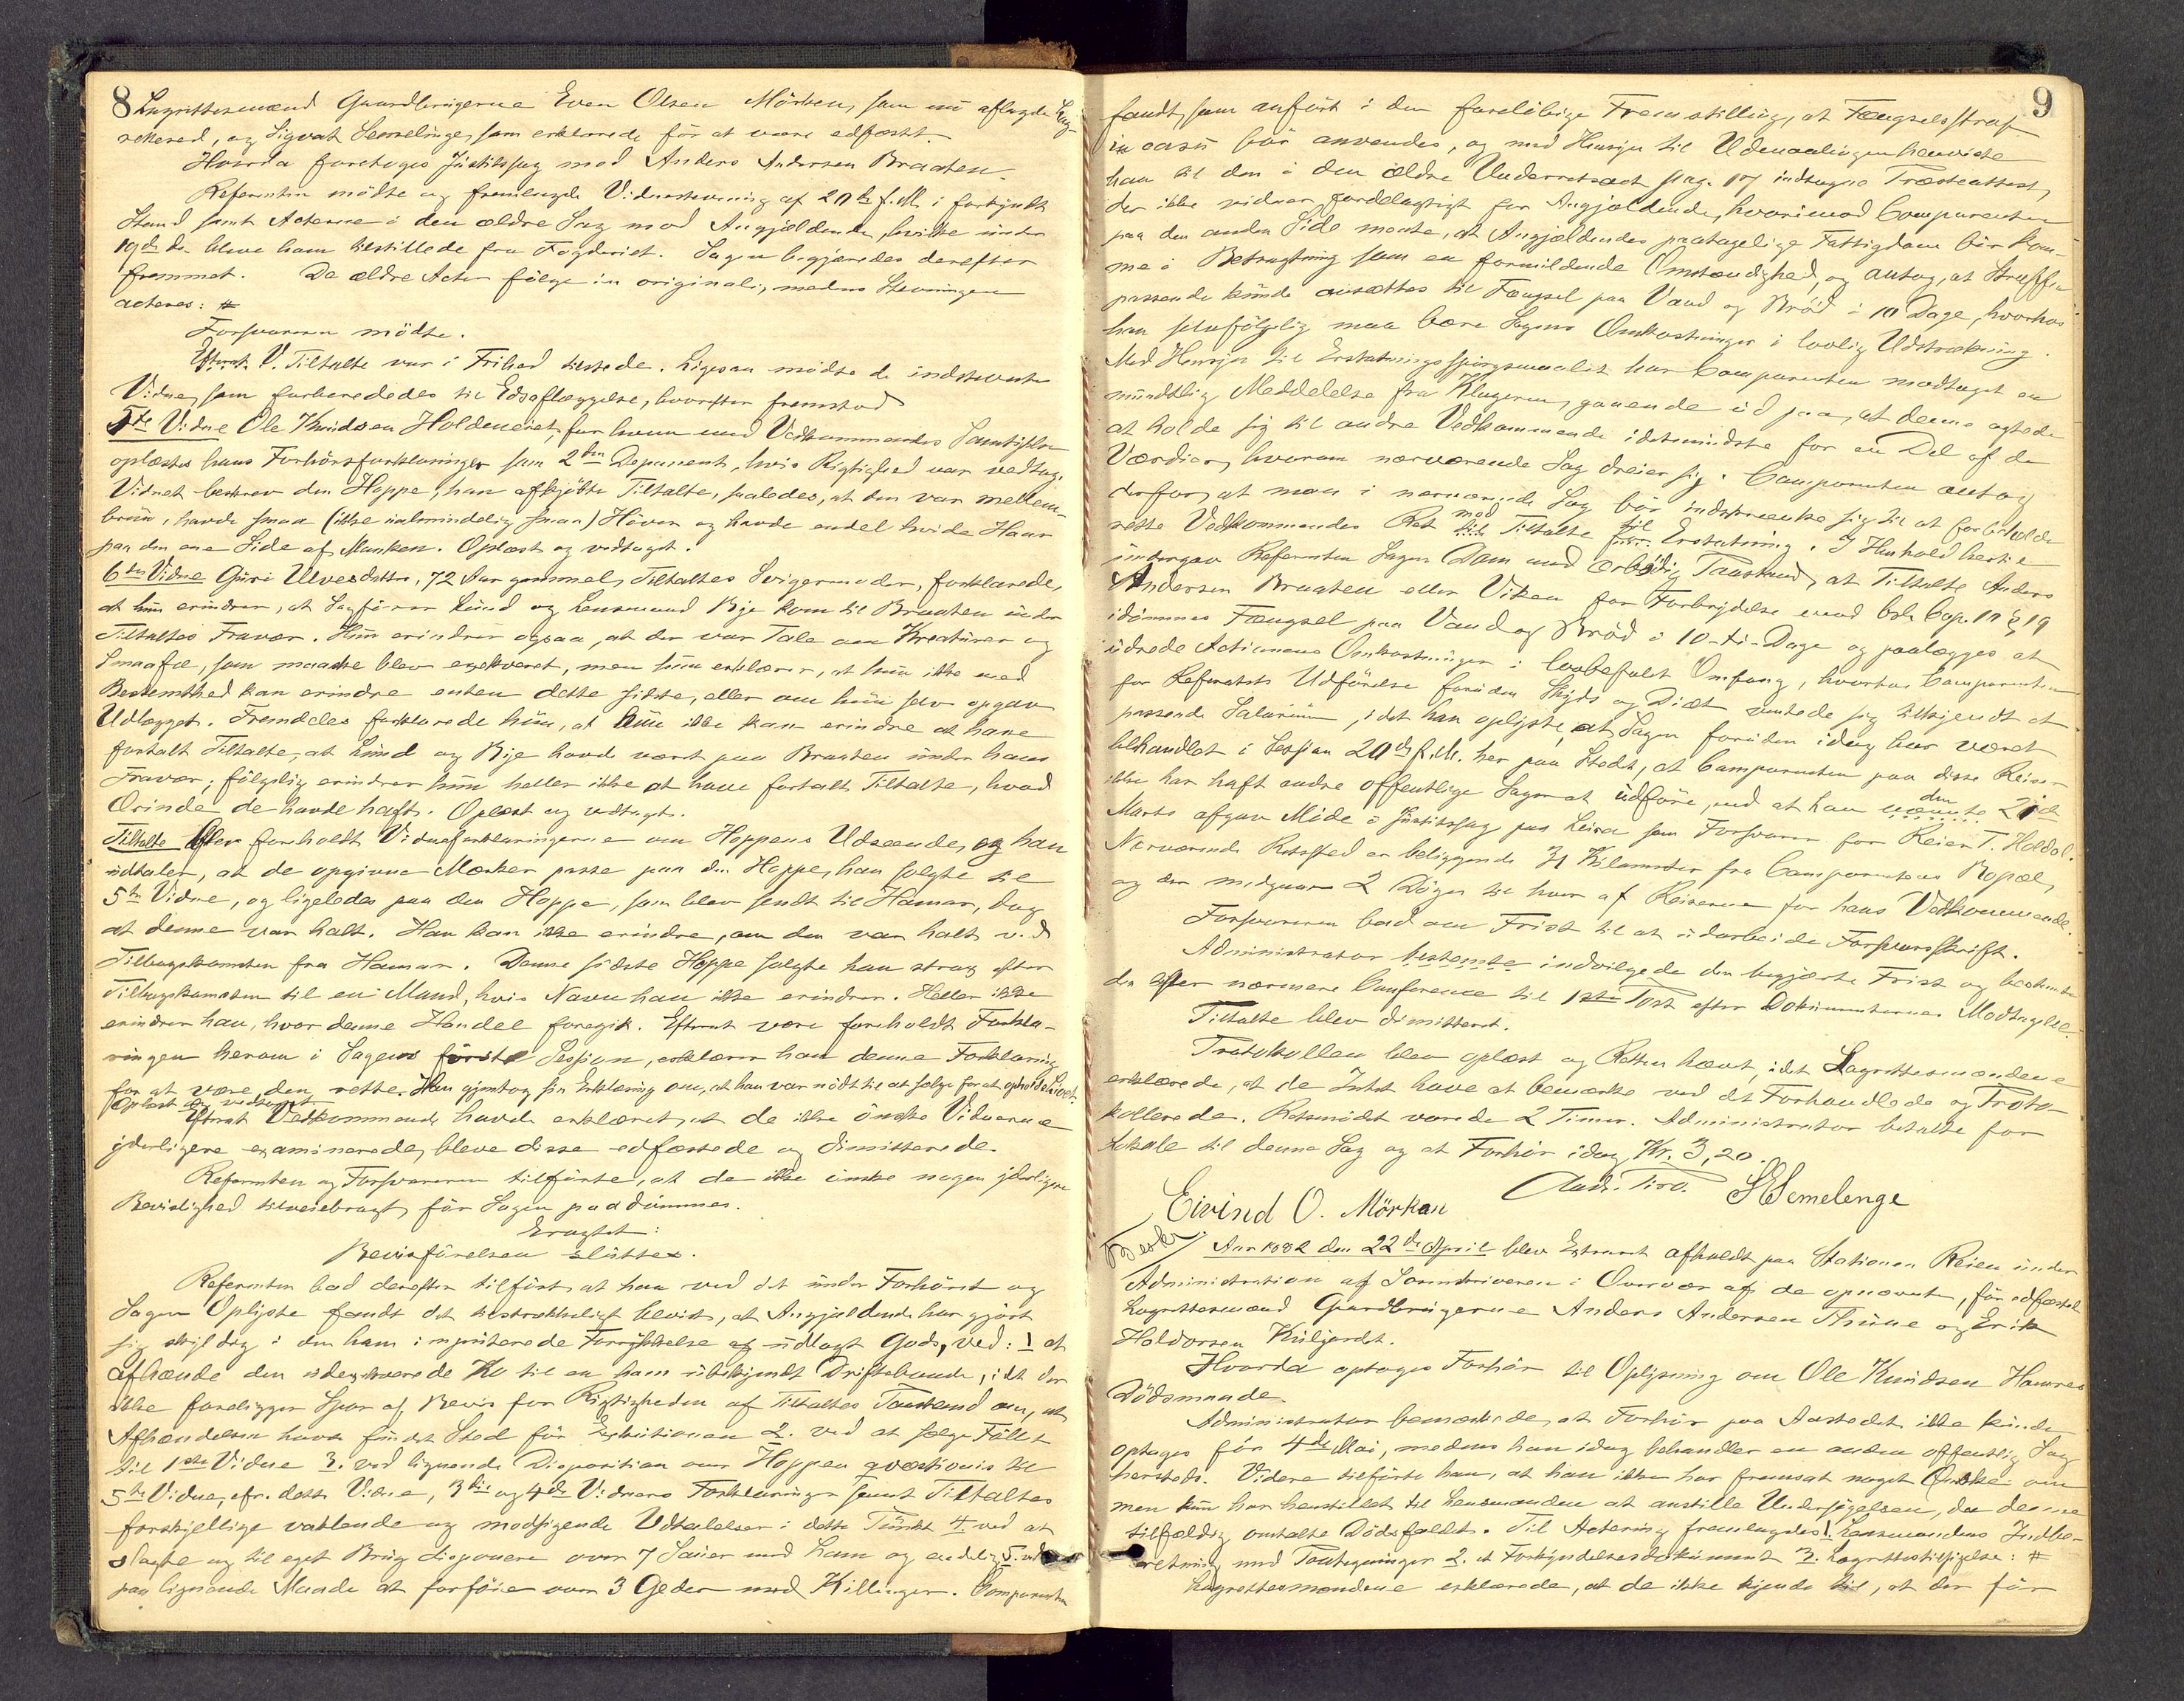 8 Lagrettesmænd Gaardbrugerne Even Olsen Mörken, som nu aflagde Lag-
retteed, og Sigvat Semelinge, som erklærede før at være edfæstet.
Hvorda foretoges Justitssag mod Anders Andersen Braaten.
Referenten mödte og fremlagde Vidnestevning af 20de f. M. i forkyndt
Stand samt Acterne i den ældre Sag mod Angjældende, hvilke under
19de ds. bleve ham tilstillede fra Fogderiet. Sagen begjæredes derefter
fremmet. De ældre Acter følge in originali, medens Stevningen
acteres: #
Forsvareren mödte.
Tiltalte var i Frihed tilstede. Ligesaa mödte de indstevnte
Vidner, som forberededes til Edsaflæggelse, hvorefter fremstod
5te Vidne Ole Knudsen Holdeneiet, for hvem med Vedkommendes Samtykke
oplæstes hans Forhörsforklaringer som 2den Deponent, hvis Rigtighed var vedtag.
Vidnet beskrev den Hoppe, han afkjöbte Tiltalte, saaledes, at den var mellem-
brun, havde smaa (ikke ualmindelig smaa) Höver og havde endel hvide Haar
paa den ene Side af Manken. Oplæst og vedtaget.
6te Vidne Guri Ulvesdatter, 72 Aar gammel, Tiltaltes Svigermoder, forklarede,
at hun erindrer, at Sagförer Lund og Lensmand Bye kom til Braaten under
Tiltaltes Fravær. Hun erindrer ogsaa, at der var Tale om Kreaturer og
Smaafæ, som maatte blev exekveret, men hun erklærer, at hun ikke med
Bestemthed kan erindre enten dette sidste, eller om hun selv opgav
Udlægget. Fremdeles forklarede hun, at hun ikke kan erindre at have
fortalt Tiltalte, at Lund og Bye havde været paa Braaten under hans
Fravær; følgelig erindrer hun heller ikke at have fortalt Tiltalte, hvad
Ærinde de havde havt. Oplæst og vedtaget.
Tiltalte blev foreholdt Vidneforklaringerne om Hoppens Udseende, og han
udtaler, at de opgivne Mærker passe paa den Hoppe, han solgte til
5te Vidne, og ligeledes paa den Hoppe, som blev sendt til Hamar, dog
at denne var halt. Han kan ikke erindre, om den var halt ved
Tilbagekomsten fra Hamar. Denne sidste Hoppe solgte han strax efter
Tilbagekomsten til en Mand, hvis Navn han ikke erindrer. Heller ikke
erindrer han, hvor denne Handel foregik. Efterat være foreholdt Forkla-
ringen herom i Sagens förste Session, erklærer han denne Forklaring
for at være den rette. Han gjentog sin Erklæring om, at han var nödt til at sælge for at opholde Livet.
Oplæst og vedtaget.
Efterat Vedkommende havde erklæret, at de ikke önske Vidnerne
yderligere examinerede, bleve disse edfæstede og dimitterede.
Referenten og Forsvareren tilförte, at de ikke önske nogen yderligere
Bevislighed tilveiebragt, för Sagen paadömmes.
Eragtet:
Bevisförelsen sluttes.
Referenten bad derefter tilfört, at han ved det under Forhöret og
Sagen Oplyste fandt det tilstrækkeligt bevist, at Angjældende har gjort
sig skyldig i den ham imputerede Forrykkelse af udlagt Gods, ved: 1 at
afhænde den udexekverede Ko til en ham ubekjendt Driftebonde, idet der
ikke foreligger Spor af Bevis for Rigtigheden af Tiltaltes Paastand om, at
Afhændelsen havde fundet Sted för Exekutionen 2. ved at sælge Føllet
til 1ste Vidne 3. ved lignende Disposition over Hoppen qvæstionis til
5te Vidne, cfr. dette Vidnes, 3die og 4de Vidners Forklaringer samt Tiltaltes
forskjellige vaklende og modsigende Udtalelser i dette Punkt 4. ved at
slagte og til eget Brug disponere over 7 Sauer med Lam og endelig 5. ved
paa lignende Maade at forföie over 3 Geder med Killinger. Comparenten
9
fandt, som anfört i den foreløbige Fremstilling, at Fængselsstraf
in casu bör anvendes, og med Hensyn til Udmaalingen henviste
han til den i den ældre Underretsact pag. 17 indtagne Præsteattest,
der ikke vidner fordelagtigt for Angjældende, hvorimod Comparenten
paa den anden Side mente, at Angjældendes paatagelige Fattigdom bör kom-
me i Betragtning som en formildende Omstændighed, og antog, at Straffen
passende kunde ansættes til Fængsel paa Vand og Bröd i 10 Dage, hvorhos
han selvfölgelig maa bære Sagens Omkostninger i lovlig Udstrækning.
Med Hensyn til Erstatningsspörgsmaalet har Comparenten modtaget en
mundtlig Meddelelse fra Klageren, gaaende ud paa, at denne agtede
at holde sig til andre Vedkommende idetmindste for en Del af de
Værdier, hvorom nærværende Sag dreier sig. Comparenten antog
derfor, at man i nærværende Sag bör indskrænke sig til at forbeholde
rette Vedkommendes Ret mod Tiltalte til Erstatning. I Henhold hertil
undergav Referenten Sagen Dom med ærbödig Paastand, at Tiltalte Anders
Andersen Braaten eller Viken for Forbrydelse mod Crl. Cap. 10 § 19
idömmes Fængsel paa Vand og Bröd i 10-ti-Dage og paalægges at
udrede Actionens Omkostninger i lovbefalet Omfang, hvorhos Comparenten
for Referatets Udförelse foruden Skyds og Diæt ventede sig tilkjendt et
passende Salarium, idet han oplyste, at Sagen foruden idag har været
behandlet i Session 20de f. M. her paa Stedet, at Comparenten paa disse Reiser
ikke har haft andre offentlige Sager at udföre, end at han den 21de
Marts afgav Möde i Justitssag paa Leira som Forsvarer for Reier T. Holdal.
Nærværende Retssted er beliggende 31 Kilometer fra Comparentens Bopæl,
og der medgaar 2 Döger til hver af Reiserne for hans Vedkommende.
Forsvareren bad om Frist til at udarbeide Forsvarsskrift.
Administrator bestemte indvilgede den begjærte Frist og bestemte
den efter nærmere Conference til 1ste Post efter Dokumenternes Modtagelse.
Tiltalte blev dimitteret.
Protokollen blev oplæst og Retten hævet, idet Lagrettesmændene
erklærede, at de Intet have at bemærke ved det Forhandlede og Proto-
kollerede. Retsmödet varede 2 Timer. Administrator betalte for
Lokale til denne Sag og et Forhör idag Kr. 3,20.
Eivind O. Mörken S Semelenge
Beskr.
Aar 1882 den 22de April blev Extraret afholdt paa Stationen Reien under
Administration af Sorenskriveren i Overvær af de opnævnte, för edfæstede
Lagrettesmænd Gaardbrugerne Anders Andersen Thune og Erik
Haldorsen Kuljordet.
Hvorda optoges Forhör til Oplysning om Ole Knudsen Hamres
Dödsmaade.
Administrator bemærkede, at Forhör paa Aastedet ikke kunde
optages för 4de Mai, medens han idag behandler en anden offentlig Sag
hersteds. Videre tilförte han, at han ikke har fremsat noget Önske om
men kun har henstillet til Lensmanden at anstille Undersögelsen, da denne
tilfældig omtalte Dödsfaldet. Til Actering fremlagdes 1. Lensmandens Indbe-
retning med Paategninger 2. et Forkyndelsesdokument 3. Lagrettestilsigelse: #
Lagrettesmændene erklærede, at de ikke kjende til, at der för